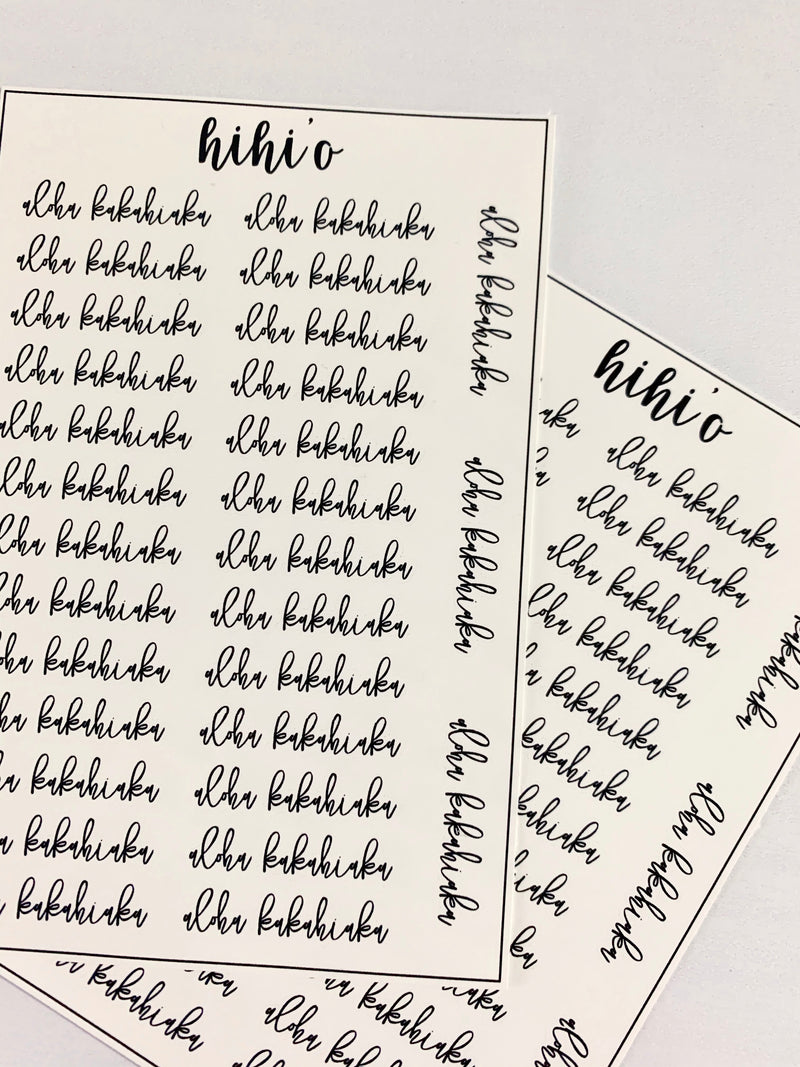 hihi'o
aloha kakahiaka aloha kakahiaka
aloha kakahiaka aloha kakahiaka
aloha kakahiaka aloha kakahiaka
aloha kakahiaka aloha kakahiaka
aloha kakahiaka aloha kakahiaka
kakahiaka aloha kakahiaka
kakahiaka aloha kakahiaka
kakahiaka aloha kakahiaka
kakahiaka aloha kakahiaka
kakahiaka aloha kakahiaka
kakahiaka aloha kakahiaka
kakahiaka aloha kakahiaka
kakahiaka aloha kakahiaka
aloha kakahiaka
aloha kakahiaka
aloha kakahiaka
hihi'o
aloha kakahiaka
aloha kakahiaka
aloha kakahiaka
kakahiaka
kakahiaka
kakahiaka
aloha kakahiaka
aloha
kakahiaka
kakahiaka
aloha